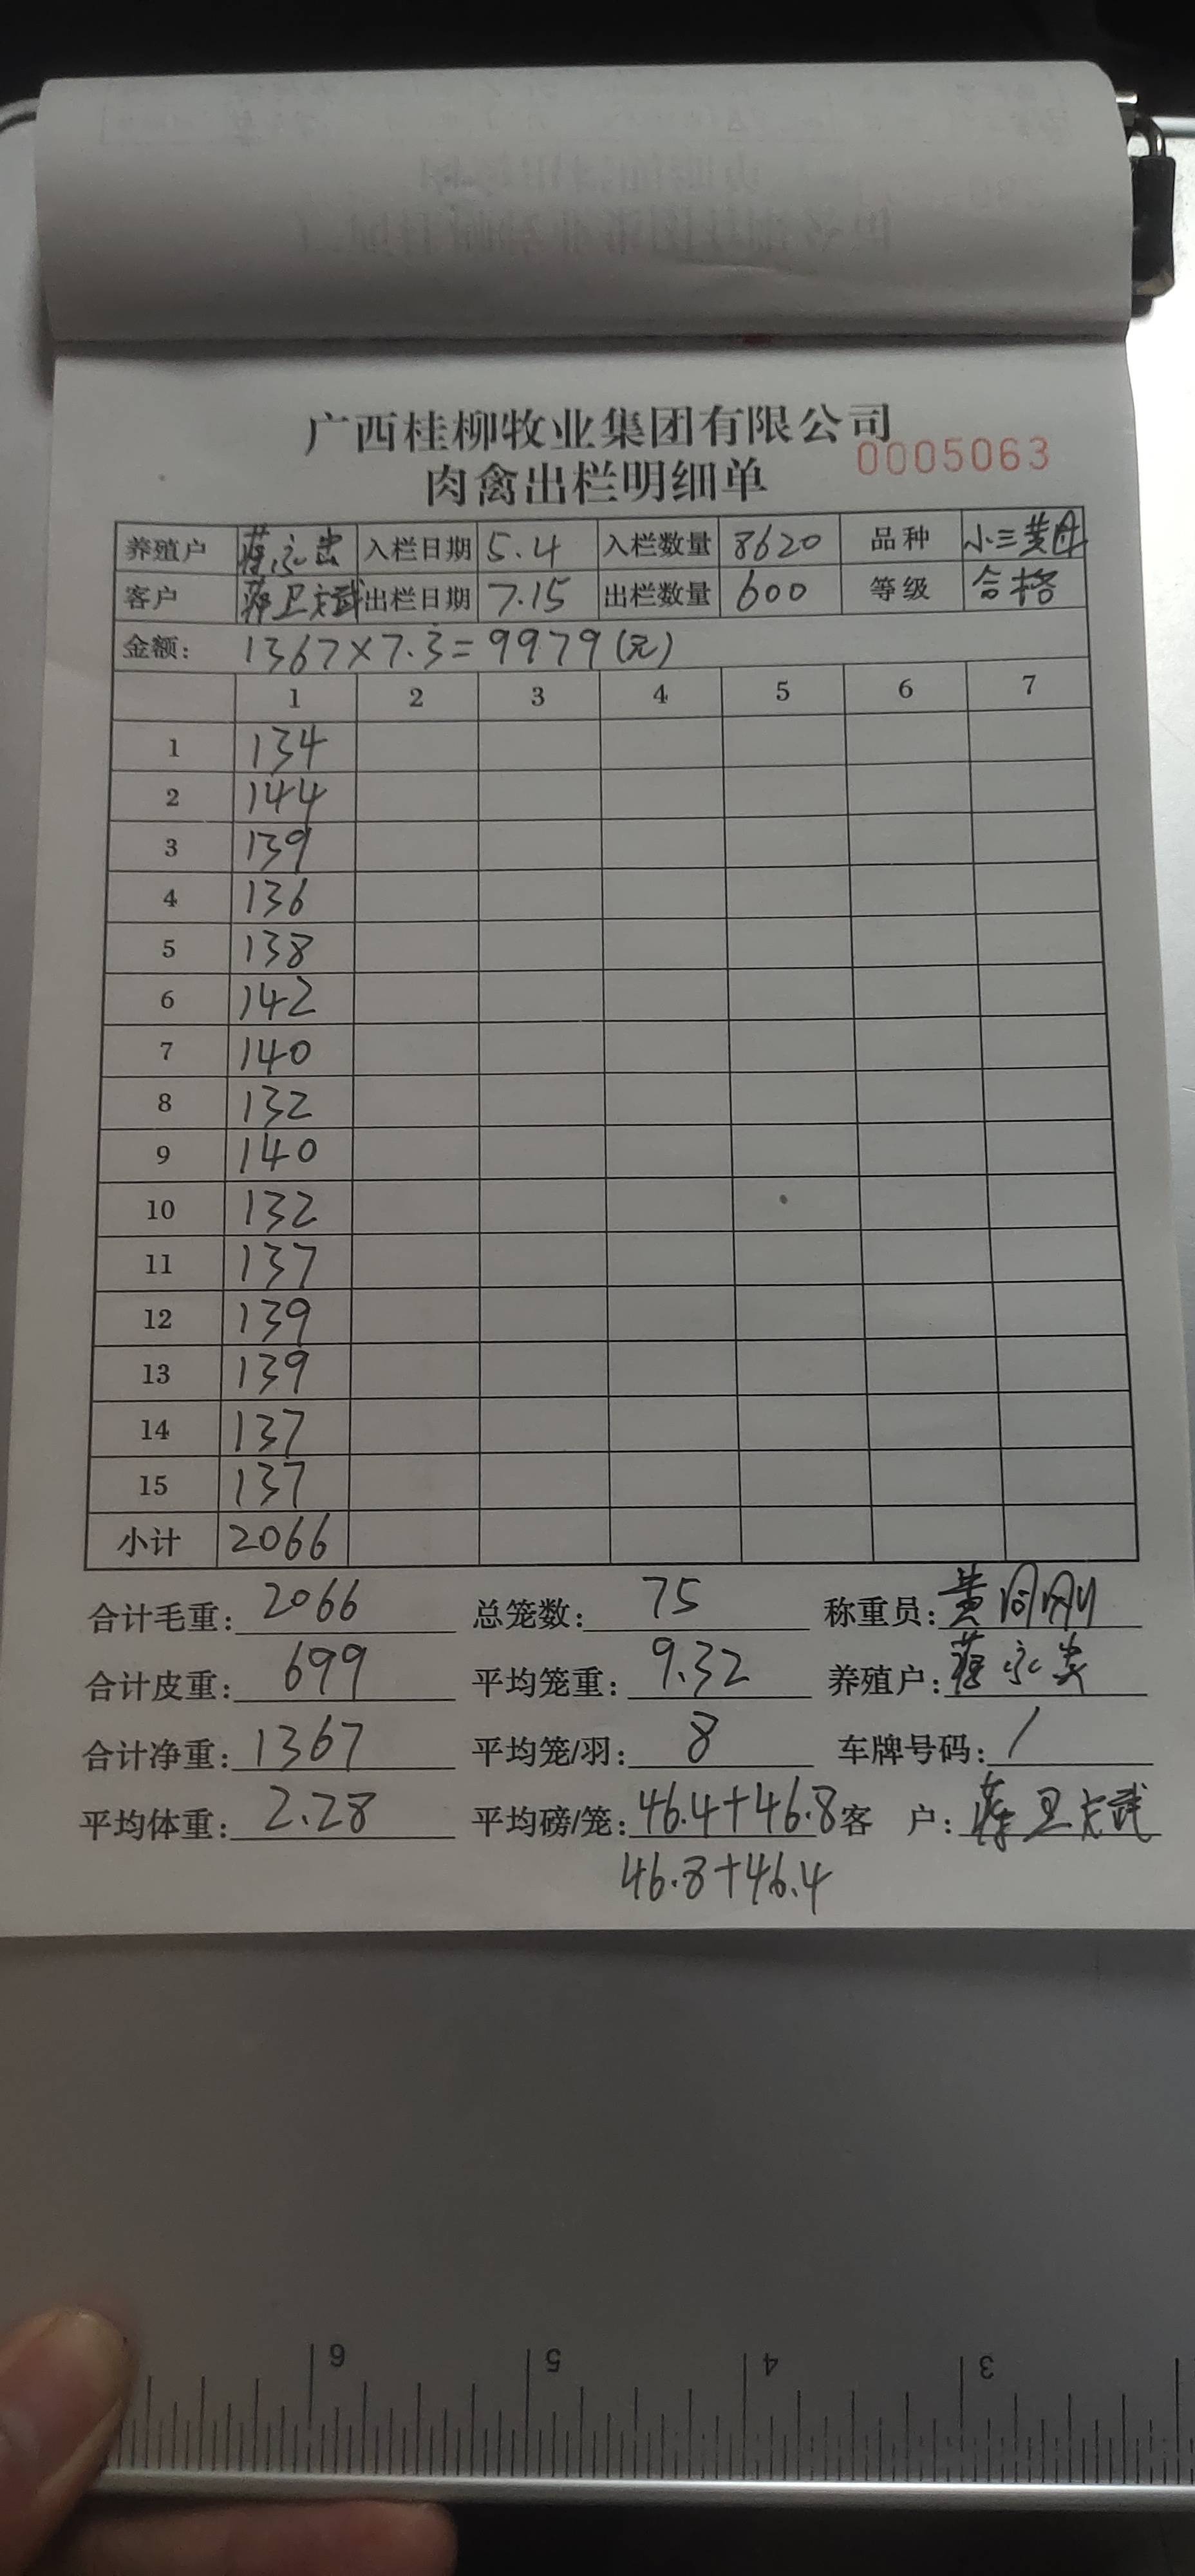 广西桂柳牧业集团有限公司
肉禽出栏明细单 0005063
养殖户 蒋永忠 入栏日期 5.4 入栏数量 8620 品种 小三黄母
客户 蒋卫武 出栏日期 7.15 出栏数量 600 等级 合格
金额: 1367×7.3=9979(元)
1 2 3 4 5 6 7
1 134
2 144
3 139
4 136
5 138
6 142
7 140
8 132
9 140
10 132
11 137
12 139
13 139
14 137
15 137
小计 2066
合计毛重: 2066 总笼数: 75 称重员: 黄
合计皮重: 699 平均笼重: 9.32 养殖户: 蒋永
合计净重: 1367 平均笼/羽: 8 车牌号码: /
平均体重: 2.28 平均磅/笼: 46.4+46.8 客户: 蒋卫武
46.8+46.4
6 5 4 3